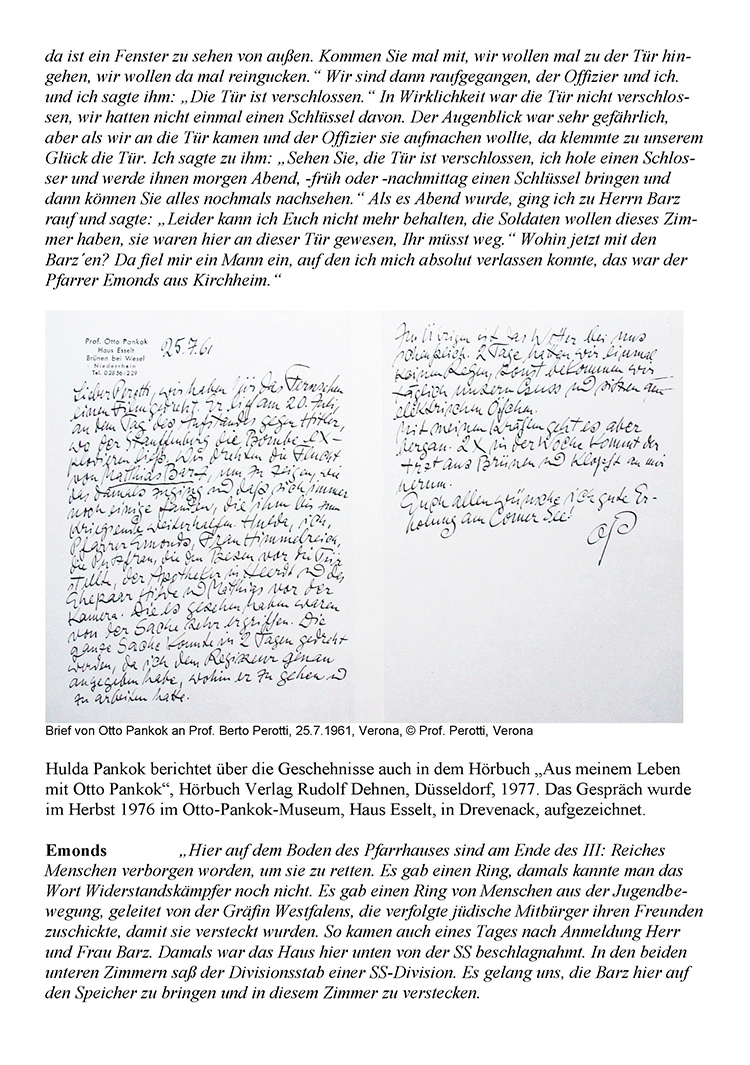 da ist ein Fenster zu sehen von außen. Kommen Sie mal mit, wir wollen mal zu der Tür hin-
gehen, wir wollen da mal reingucken.“ Wir sind dann raufgegangen, der Offizier und ich.
und ich sagte ihm: „Die Tür ist verschlossen.“ In Wirklichkeit war die Tür nicht verschlos-
sen, wir hatten nicht einmal einen Schlüssel davon. Der Augenblick war sehr gefährlich,
aber als wir an die Tür kamen und der Offizier sie aufmachen wollte, da klemmte zu unserem
Glück die Tür. Ich sagte zu ihm: „Sehen Sie, die Tür ist verschlossen, ich hole einen Schlos-
ser und werde ihnen morgen Abend, -früh oder -nachmittag einen Schlüssel bringen und
dann können Sie alles nochmals nachsehen.“ Als es Abend wurde, ging ich zu Herrn Barz
rauf und sagte: „Leider kann ich Euch nicht mehr behalten, die Soldaten wollen dieses Zim-
mer haben, sie waren hier an dieser Tür gewesen, Ihr müsst weg.“ Wohin jetzt mit den
Barz´en? Da fiel mir ein Mann ein, auf den ich mich absolut verlassen konnte, das war der
Pfarrer Emonds aus Kirchheim.“
Prof. Otto Pankok
Haus Esselt
Brünen bei Wesel
- Niederrhein -
Tel. 02856/229
25.7.61
Lieber Perotti, wir haben für das Fernsehen
einen Film gedreht. Er lief am 20. Juli,
an dem Tag des Aufstandes gegen Hitler,
wo der Stauffenberg die Bombe ex-
plodieren ließ. Wir drehten die Flucht
von Mathias Barz, um zu zeigen, wie
das damals zuging und daß sich immer
noch einige fanden, die ihm bis zum
Kriegsende weiterhalfen. Hulda, ich,
Pfarrer Emonds, Frau Himmelreich,
die Putzfrau, die den Besen vor die Tür
stellte, der Apotheker in Heerdt und das
Ehepaar Hilde und Mathias vor der
Kamera. Die es gesehen haben waren
von der Sache sehr ergriffen. Die
ganze Sache konnte in 2 Tagen gedreht
werden, da ich dem Regisseur genau
angegeben habe, wohin er zu gehen und
zu arbeiten hatte.
Im Übrigen ist das Wetter bei uns
scheußlich. 2 Tage hatten wir einmal
keinen Regen, sonst bekommen wir
täglich unsern Guss und sitzen am
elektrischen Öfchen.
Mit meinen Kräften geht es aber
bergan. 2 X in der Woche kommt der
Arzt aus Brünen und klopft an mir
herum.
Euch allen wünsche ich gute Er-
holung am Comer See!
OP
Brief von Otto Pankok an Prof. Berto Perotti, 25.7.1961, Verona, © Prof. Perotti, Verona
Hulda Pankok berichtet über die Geschehnisse auch in dem Hörbuch „Aus meinem Leben
mit Otto Pankok“, Hörbuch Verlag Rudolf Dehnen, Düsseldorf, 1977. Das Gespräch wurde
im Herbst 1976 im Otto-Pankok-Museum, Haus Esselt, in Drevenack, aufgezeichnet.
Emonds „Hier auf dem Boden des Pfarrhauses sind am Ende des III: Reiches
Menschen verborgen worden, um sie zu retten. Es gab einen Ring, damals kannte man das
Wort Widerstandskämpfer noch nicht. Es gab einen Ring von Menschen aus der Jugendbe-
wegung, geleitet von der Gräfin Westfalens, die verfolgte jüdische Mitbürger ihren Freunden
zuschickte, damit sie versteckt wurden. So kamen auch eines Tages nach Anmeldung Herr
und Frau Barz. Damals war das Haus hier unten von der SS beschlagnahmt. In den beiden
unteren Zimmern saß der Divisionsstab einer SS-Division. Es gelang uns, die Barz hier auf
den Speicher zu bringen und in diesem Zimmer zu verstecken.